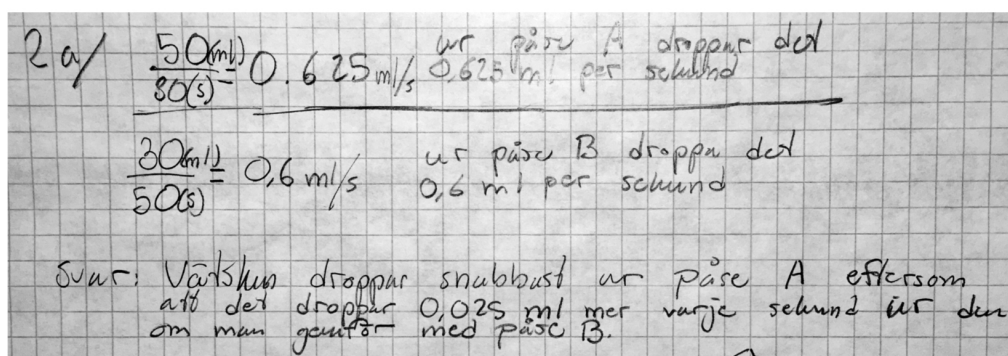 2 a/ 50(ml)/80(s) = 0.625 ml/s ur påse A droppar det
0,625 ml per sekund
30(ml)/50(s) = 0,6 ml/s ur påse B droppa det
0,6 ml per sekund
Svar: Vätskan droppar snabbast ur påse A eftersom
att det droppar 0,025 ml mer varje sekund ur den
om man gemför med påse B.